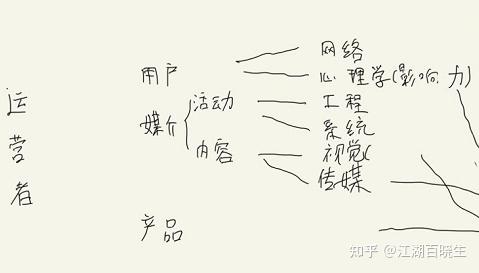 运营者
用户
媒介
活动
内容
产品
网络
心理学(影响力)
工程
系统
视觉(
传媒
知乎 @江湖百晓生